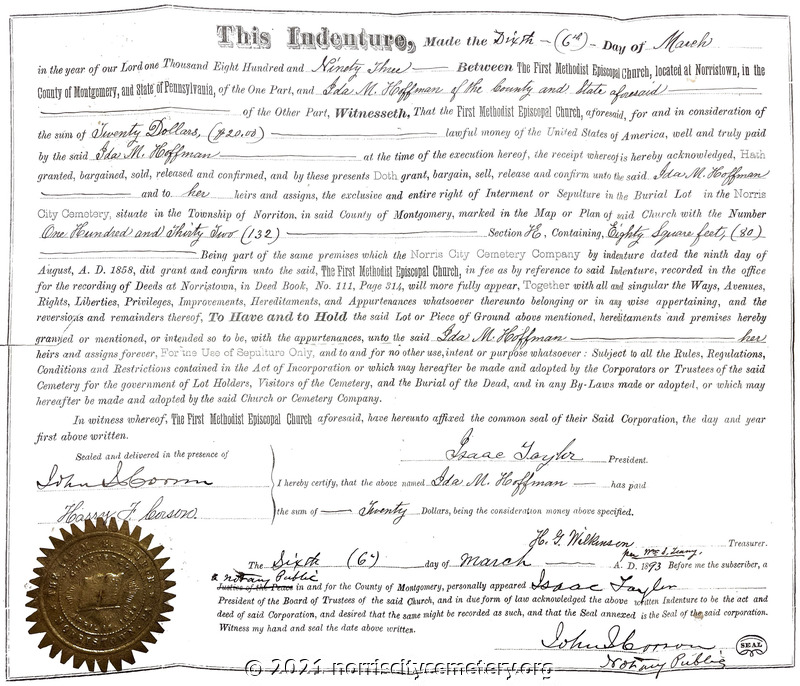 This Indenture, Made the Sixth (6th) Day of March
in the year of our Lord one Thousand Eight Hundred and Ninety Three Between The First Methodist Episcopal Church, located at Norristown, in the
County of Montgomery, and State of Pennsylvania, of the One Part, and Ida M. Hoffman of the County and State aforesaid
of the Other Part, Witnesseth, That the First Methodist Episcopal Church, aforesaid, for and in consideration of
the sum of Twenty Dollars, ($20.00) lawful money of the United States of America, well and truly paid
by the said Ida M. Hoffman at the time of the execution hereof, the receipt whereof is hereby acknowledged, Hath
granted, bargained, sold, released and confirmed, and by these presents Doth grant, bargain, sell, release and confirm unto the said Ida M. Hoffman
and to her heirs and assigns, the exclusive and entire right of Interment or Sepulture in the Burial Lot in the Norris
City Cemetery, situate in the Township of Norriton, in said County of Montgomery, marked in the Map or Plan of said Church with the Number
One Hundred and Thirty Two (132) Section H, Containing, Eighty Square feet, (80)
Being part of the same premises which the Norris City Cemetery Company by indenture dated the ninth day of
August, A. D. 1858, did grant and confirm unto the said, The First Methodist Episcopal Church, in fee as by reference to said Indenture, recorded in the office
for the recording of Deeds at Norristown, in Deed Book, No. 111, Page 314, will more fully appear, Together with all and singular the Ways, Avenues,
Rights, Liberties, Privileges, Improvements, Hereditaments, and Appurtenances whatsoever thereunto belonging or in any wise appertaining, and the
reversions and remainders thereof, To Have and to Hold the said Lot or Piece of Ground above mentioned, hereditaments and premises hereby
granted or mentioned, or intended so to be, with the appurtenances, unto the said Ida M. Hoffman her
heirs and assigns forever, For the Use of Sepulture Only, and to and for no other use, intent or purpose whatsoever: Subject to all the Rules, Regulations,
Conditions and Restrictions contained in the Act of Incorporation or which may hereafter be made and adopted by the Corporators or Trustees of the said
Cemetery for the government of Lot Holders, Visitors of the Cemetery, and the Burial of the Dead, and in any By-Laws made or adopted, or which may
hereafter be made and adopted by the said Church or Cemetery Company.
In witness whereof, The First Methodist Episcopal Church aforesaid, have hereunto affixed the common seal of their Said Corporation, the day and year
first above written.
Sealed and delivered in the presence of
Isaac Taylor President.
John S Corson
I hereby certify, that the above named Ida M. Hoffman has paid
Harry F. Corson.
the sum of Twenty Dollars, being the consideration money above specified.
H. G. Wilkinson Treasurer.
per
The Sixth (6") day of March A. D. 1893 Before me the subscriber, a
a Notary Public
Justice of the Peace in and for the County of Montgomery, personally appeared Isaac Taylor
President of the Board of Trustees of the said Church, and in due form of law acknowledged the above written Indenture to be the act and
deed of said Corporation, and desired that the same might be recorded as such, and that the Seal annexed is the Seal of the said corporation.
Witness my hand and seal the date above written.
John S Corson SEAL
Notary Public
© 2021 norriscitycemetery.org